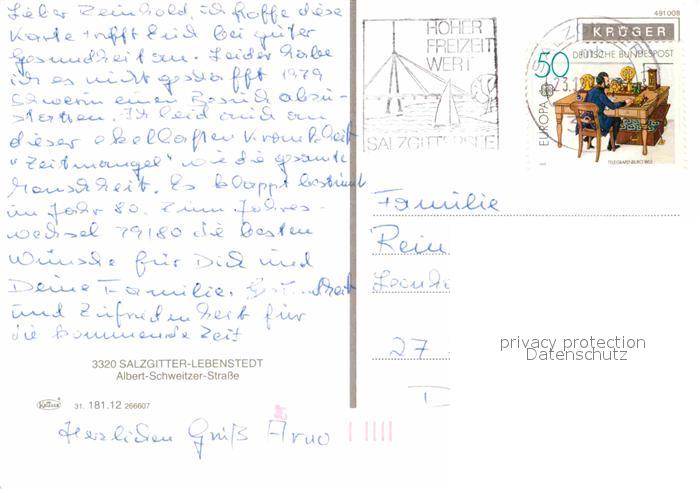 Lieber Reinhold, ich hoffe diese
Karte trifft Euch bei guter
Gesundheit an. Leider habe
ich es nicht geschafft 1979
Schwerin einen Besuch abzu-
statten. Ich leid auch an
dieser ekelhaften Krankheit
"Zeitmangel" wie die gesamte
Menschheit. Es klappt bestimmt
im Jahr 80. Zum Jahres-
wechsel 79/80 die besten
Wünsche für Dich und
Deine Familie.
und Zufriedenheit für
die kommende Zeit
3320 SALZGITTER-LEBENSTEDT
Albert-Schweitzer-Straße
31. 181.12 266607
Herzlichen Gruß Arno
HOHER
FREIZEIT
WERT
SALZGITTERSEE
491008
KRÜGER
50
DEUTSCHE BUNDESPOST
EUROPA
TELEGRAFENBÜRO 1863
Familie
Rein
27
privacy protection
Datenschutz